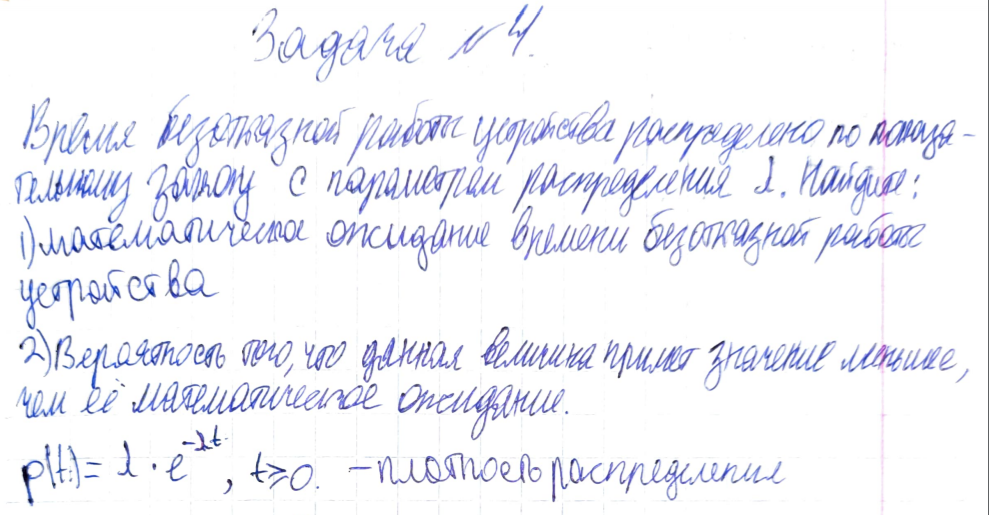 Задача №4.
Время безотказной работы устройства распределено по показа-
тельному закону с параметром распределения λ. Найдите:
1) математическое ожидание времени безотказной работы
устройства
2) Вероятность того, что данная величина примет значение меньшее,
чем её математическое ожидание.
p(t) = λ · e^{-λt}, t ≥ 0. – плотность распределения